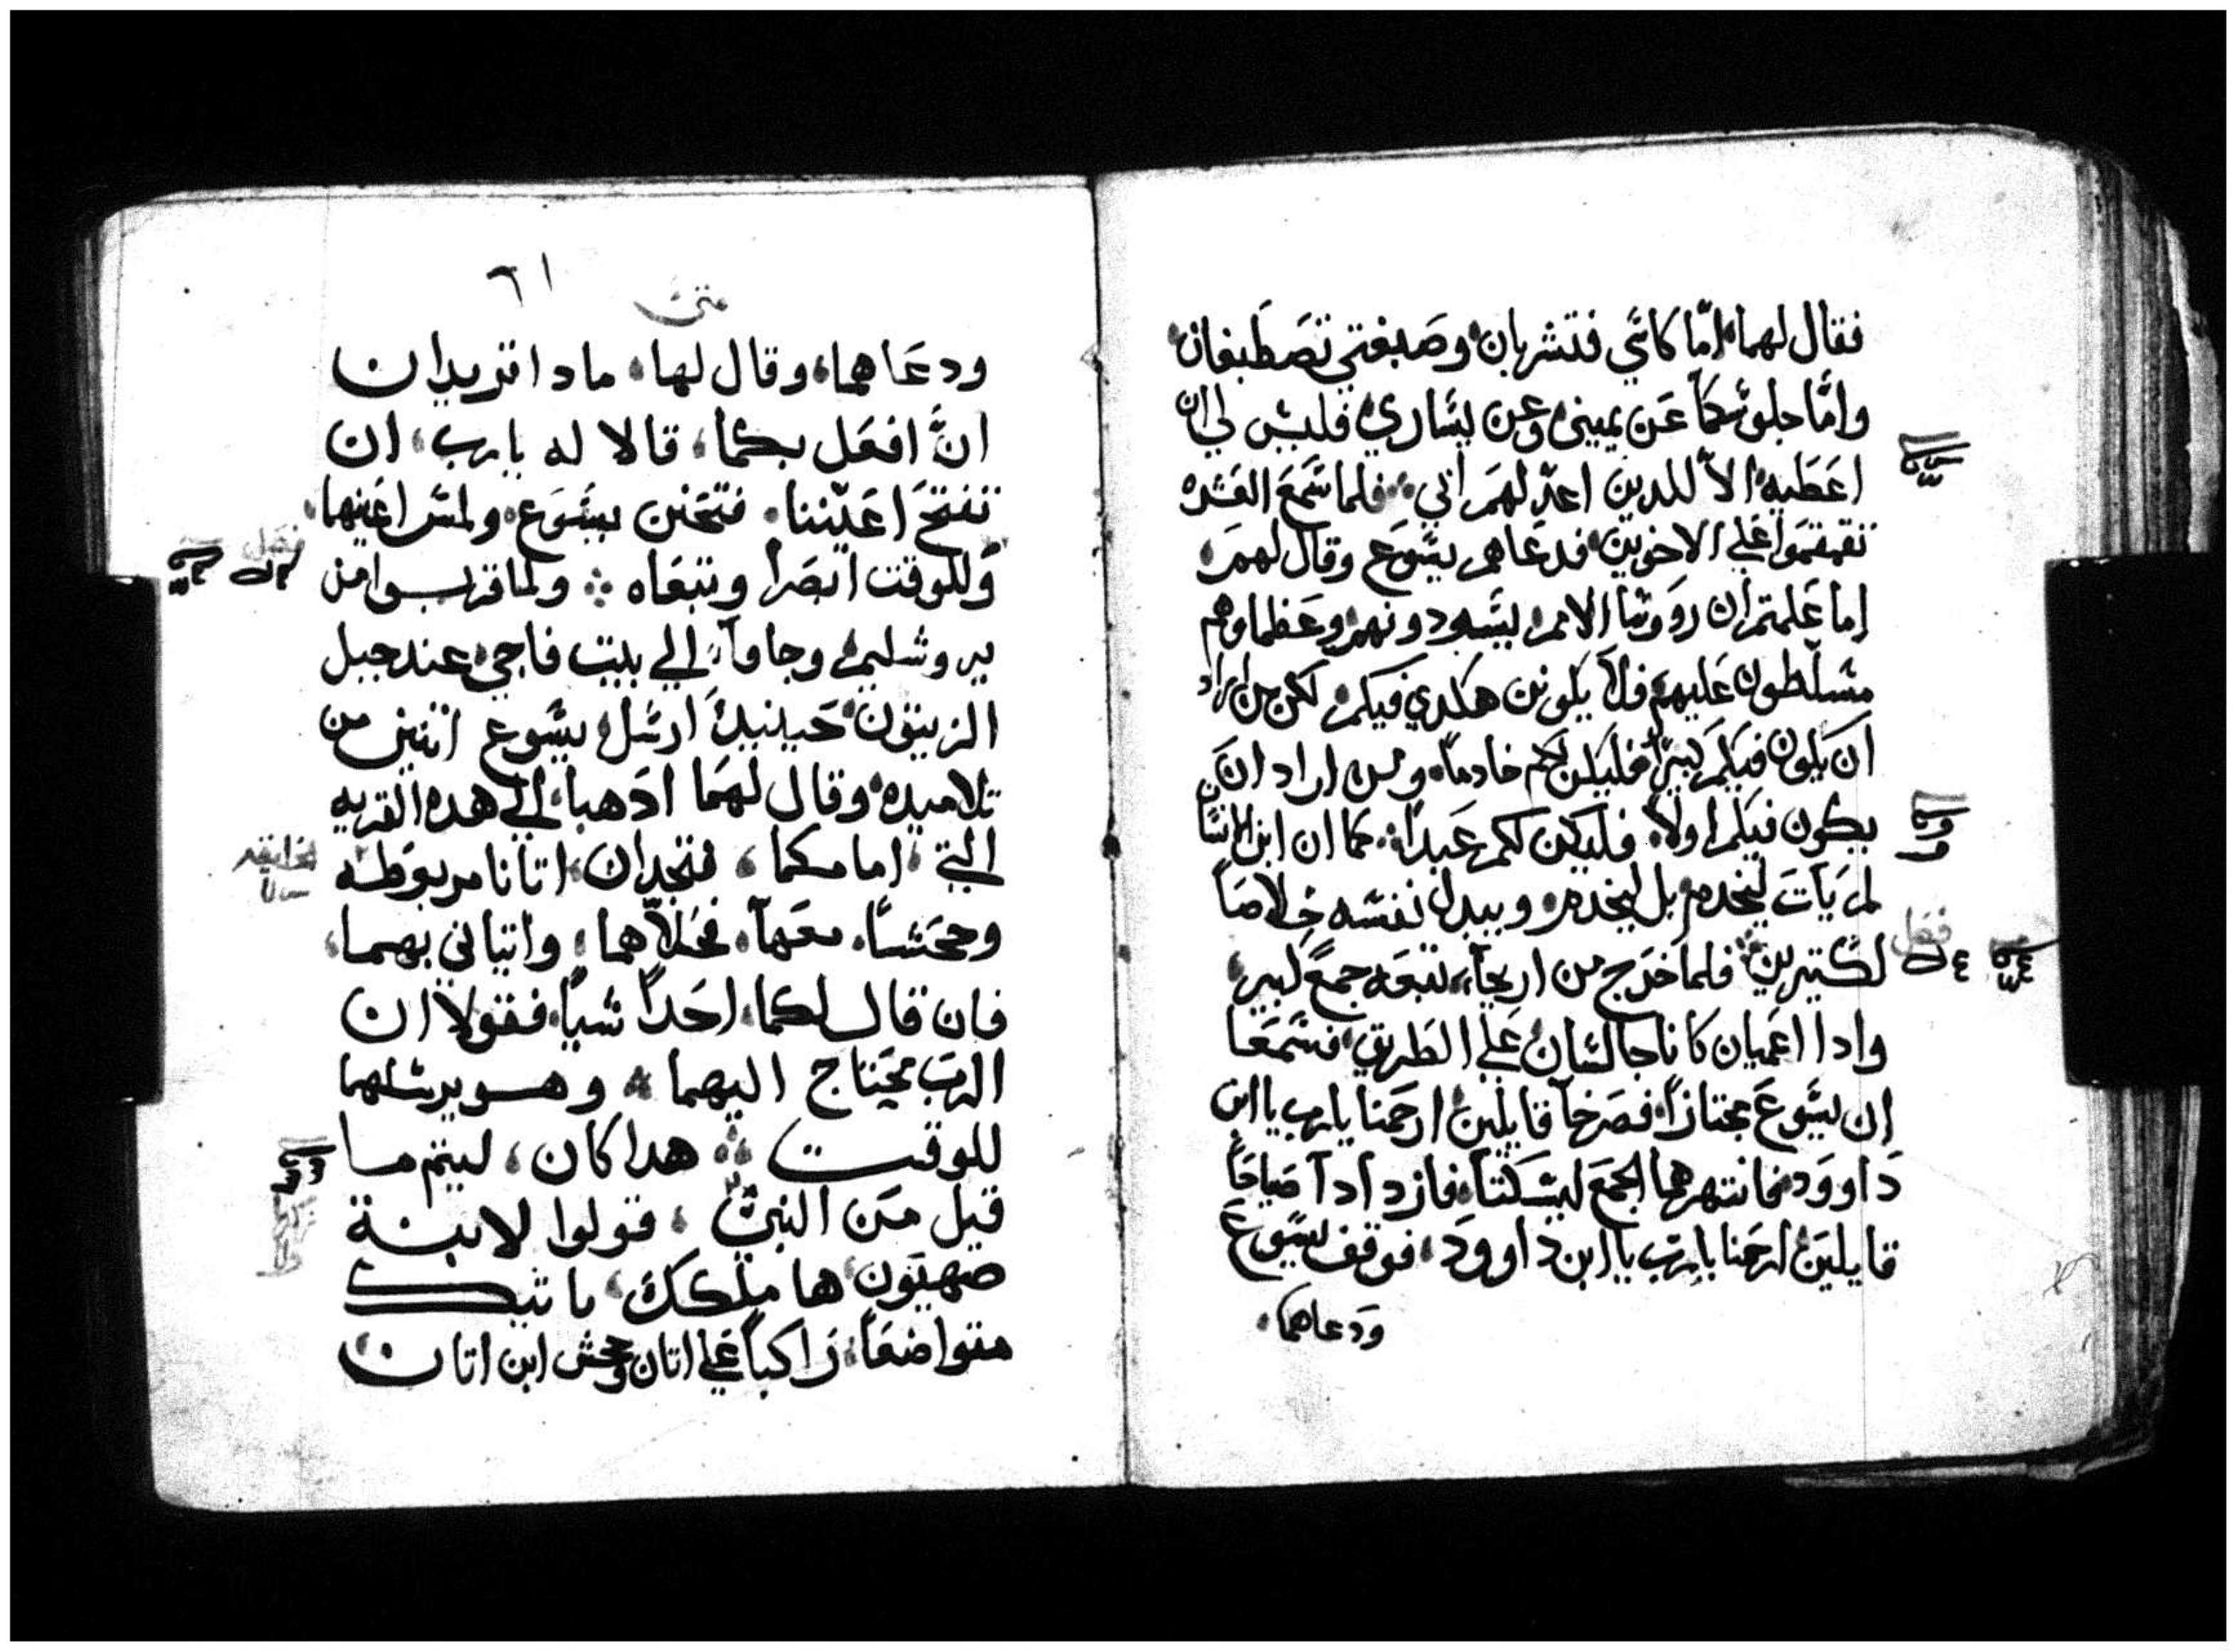 فقال لهما، امّا كاسَي فتشربان، وصَبغتي تصَطَبغان،
وامَّا جلوسَكمَا عَن يميني وعن يسَاري، فليسَ لي ان
اعَطَيه، الاّ للدين اعدّ لهمَ ابي، فلما سَمعَ العَشره
تقمقمَوا عَلي الاخوين، فدعَاهم يسَوع وقال لهمَ،
اما عَلمتم ان رووسَا الامم، يسَودونهم، وعَظماوهم
مسَلّطون عَليهم، فلا يكونن هكدي فيكم، لكن من اراد
ان يكون فيكم كبيرًا، فليكن لكم خادماً، ومن اراد ان
يكون فيكم اولاً، فليكن لكم عَبداً، كما ان ابن الانسَان
لم يَات ليُخدم، بل ليخدم، ويبدل نفسَه خلاصَاً
لكتيرين، فلما خرَج من اريحآ، تتبعَه جمعً كبير،
وادا اعَميان كانا جالسَان، عَلي الطَريق، فسَمَعَا
ان يسَوعَ مجتازاً، فصَرخآ قايلين، ارحَمنا يارب يا ابن
دَاووَد، فانتهرهما الجمعَ ليسَكتآ، فازدادآ صَياحَاً
قايلينَ ارحَمنا يارَب يا ابن داووَد، فوقف يسَوعَ
وَدعاهما،
متي
٦١
ودعَاهما، وقال لهما، مادا تريدان
انَّ افعَل بكما، قالا له يارب، ان
تفتحَ اعَيننا، فتحَنن يسَوَع، ولمسَ اعَينهما،
وَللوقت ابصَرا وتبعَاه ؞ ولما قربوا من
يروشليم، وجاوآ، الي بيت فاجي، عند جبل
الزيتون، حَينيدً ارسَل يسَوع اتنين من
تلاميده، وقال لهمَا ادَهبا، الي هده القريه
التي، امامكما، فتجدان، اتانا مربوَطه
وجحَشاً، معَهآ، فحُلاّهما، واتياني بهما،
فان قال لكما، احَداً شياً، فقولا ان
الرب محَتاج اليهما ؞ وهو يرسَلهما
للوقت ؞ هدا كان، ليتم ما
قيل مَن النبيّ، قولوا لابنة
صَهيَون، ها ملككِ، ياتيك
متواضعَاً، رَاكباً عَلي اتان وجحش ابن اتان
فصَل
فصَل